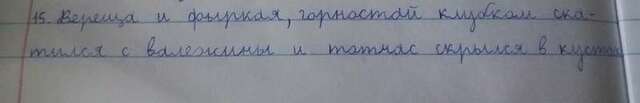 15. Вереща и фыркая, горностай клубком ска-
тился с валежины и тотчас скрылся в кустах